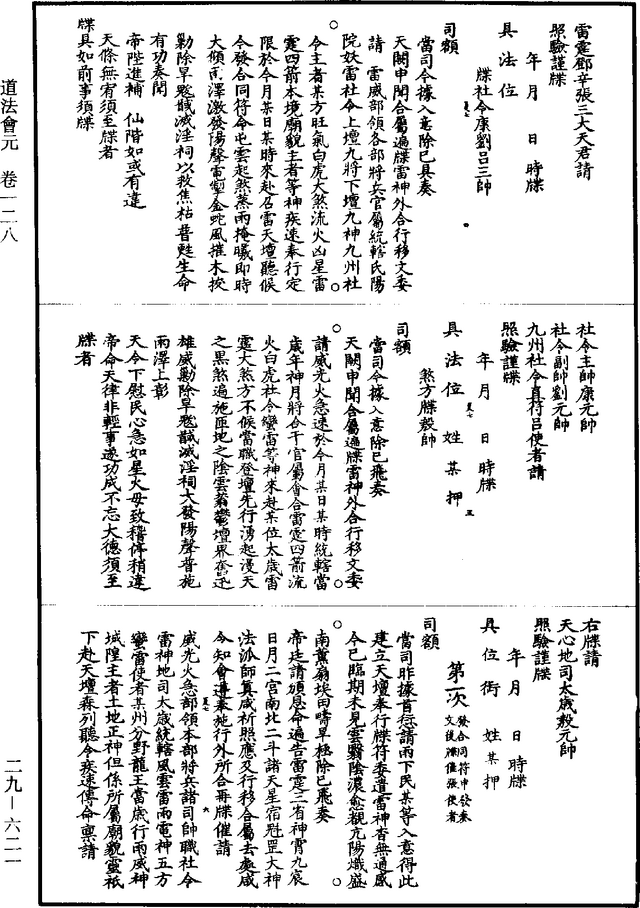 雷霆鄧辛張三大天君請
照驗謹牒
年 月 日 時牒
具 法 位
牒社令康劉呂三帥
司額
當司令據入意除已具奏
天闕申聞合屬遍牒雷神外合行移文委
請 雷威部領各部將兵官屬統轄氏陽
院妖雷社令上壇九將下壇九神九州社
令主者某方旺氣白虎大煞流火凶星雷
霆四箭本境廟貌主者等神疾速奉行定
限於今月某日某時來赴召雷天壇聽候
令發合同符命屯雲起煞蒸雨掩曦即時
大傾雨澤激發陽聲電掣金蛇風摧木拔
勦除旱魃馘滅淫祠以救焦枯普甦生命
有功奏聞
帝陛進補 仙階如或有違
天條無宥須至牒者
牒具如前事須牒
社令主帥康元帥
社令副帥劉元帥
九州社令直符呂使者請
照驗謹牒
年 月 日 時牒
具 法 位 姓 某 押
煞方牒殷帥
司額
當司令據入意除已飛奏
天闕申聞合屬遍牒雷神外合行移文委
請威光火急速於今月某日某時統轄當
歲年神月將合干官屬會合雷霆四箭流
火白虎社令蠻雷等神來赴某位太歲雷
霆大煞方不候當職登壇先行湧起漫天
之黑煞遍施匝地之陰雲蓊鬱壇界奮迅
雄威勦除旱魃馘滅淫祠大發陽聲普施
雨澤上彰
天令下慰民心急如星火毋致稽停稍違
帝命天律非輕事遂功成不忘大德須至
牒者
右牒請
天心地司太歲殷元帥
照驗謹牒
年 月 日 時牒
具 位 銜 姓 某 押
第二次 發合同符申發奏文後牒催張使者
司額
當司昨據首愆請雨下民某等入意得此
建立天壇奉行牒符委遣雷神杳無通感
今已臨期未見雲翳陰濃愈覩亢陽熾盛
南薰扇埃田疇旱極除已飛奏
帝廷請頒恩命遍告雷霆三省神霄九宸
日月二宮南北二斗諸天星宿魁罡大神
法派師真咸祈照應及行移合屬去處咸
令知會遵奉施行外所合再牒催請
威光火急部領本部將兵諸司帥職社令
雷神地司太歲統轄風雲雷雨電神五方
蠻雷使者某州分野龍王當歲行雨威神
城隍主者土地正神但係所屬廟貌靈祇
下赴天壇森列聽令疾速傳命稟請
道法會元 卷一二八
二九—六二一